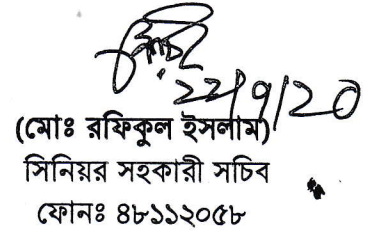 ২২/৭/২০
(মোঃ রফিকুল ইসলাম)
সিনিয়র সহকারী সচিব
ফোনঃ ৪৮১১২০৫৮